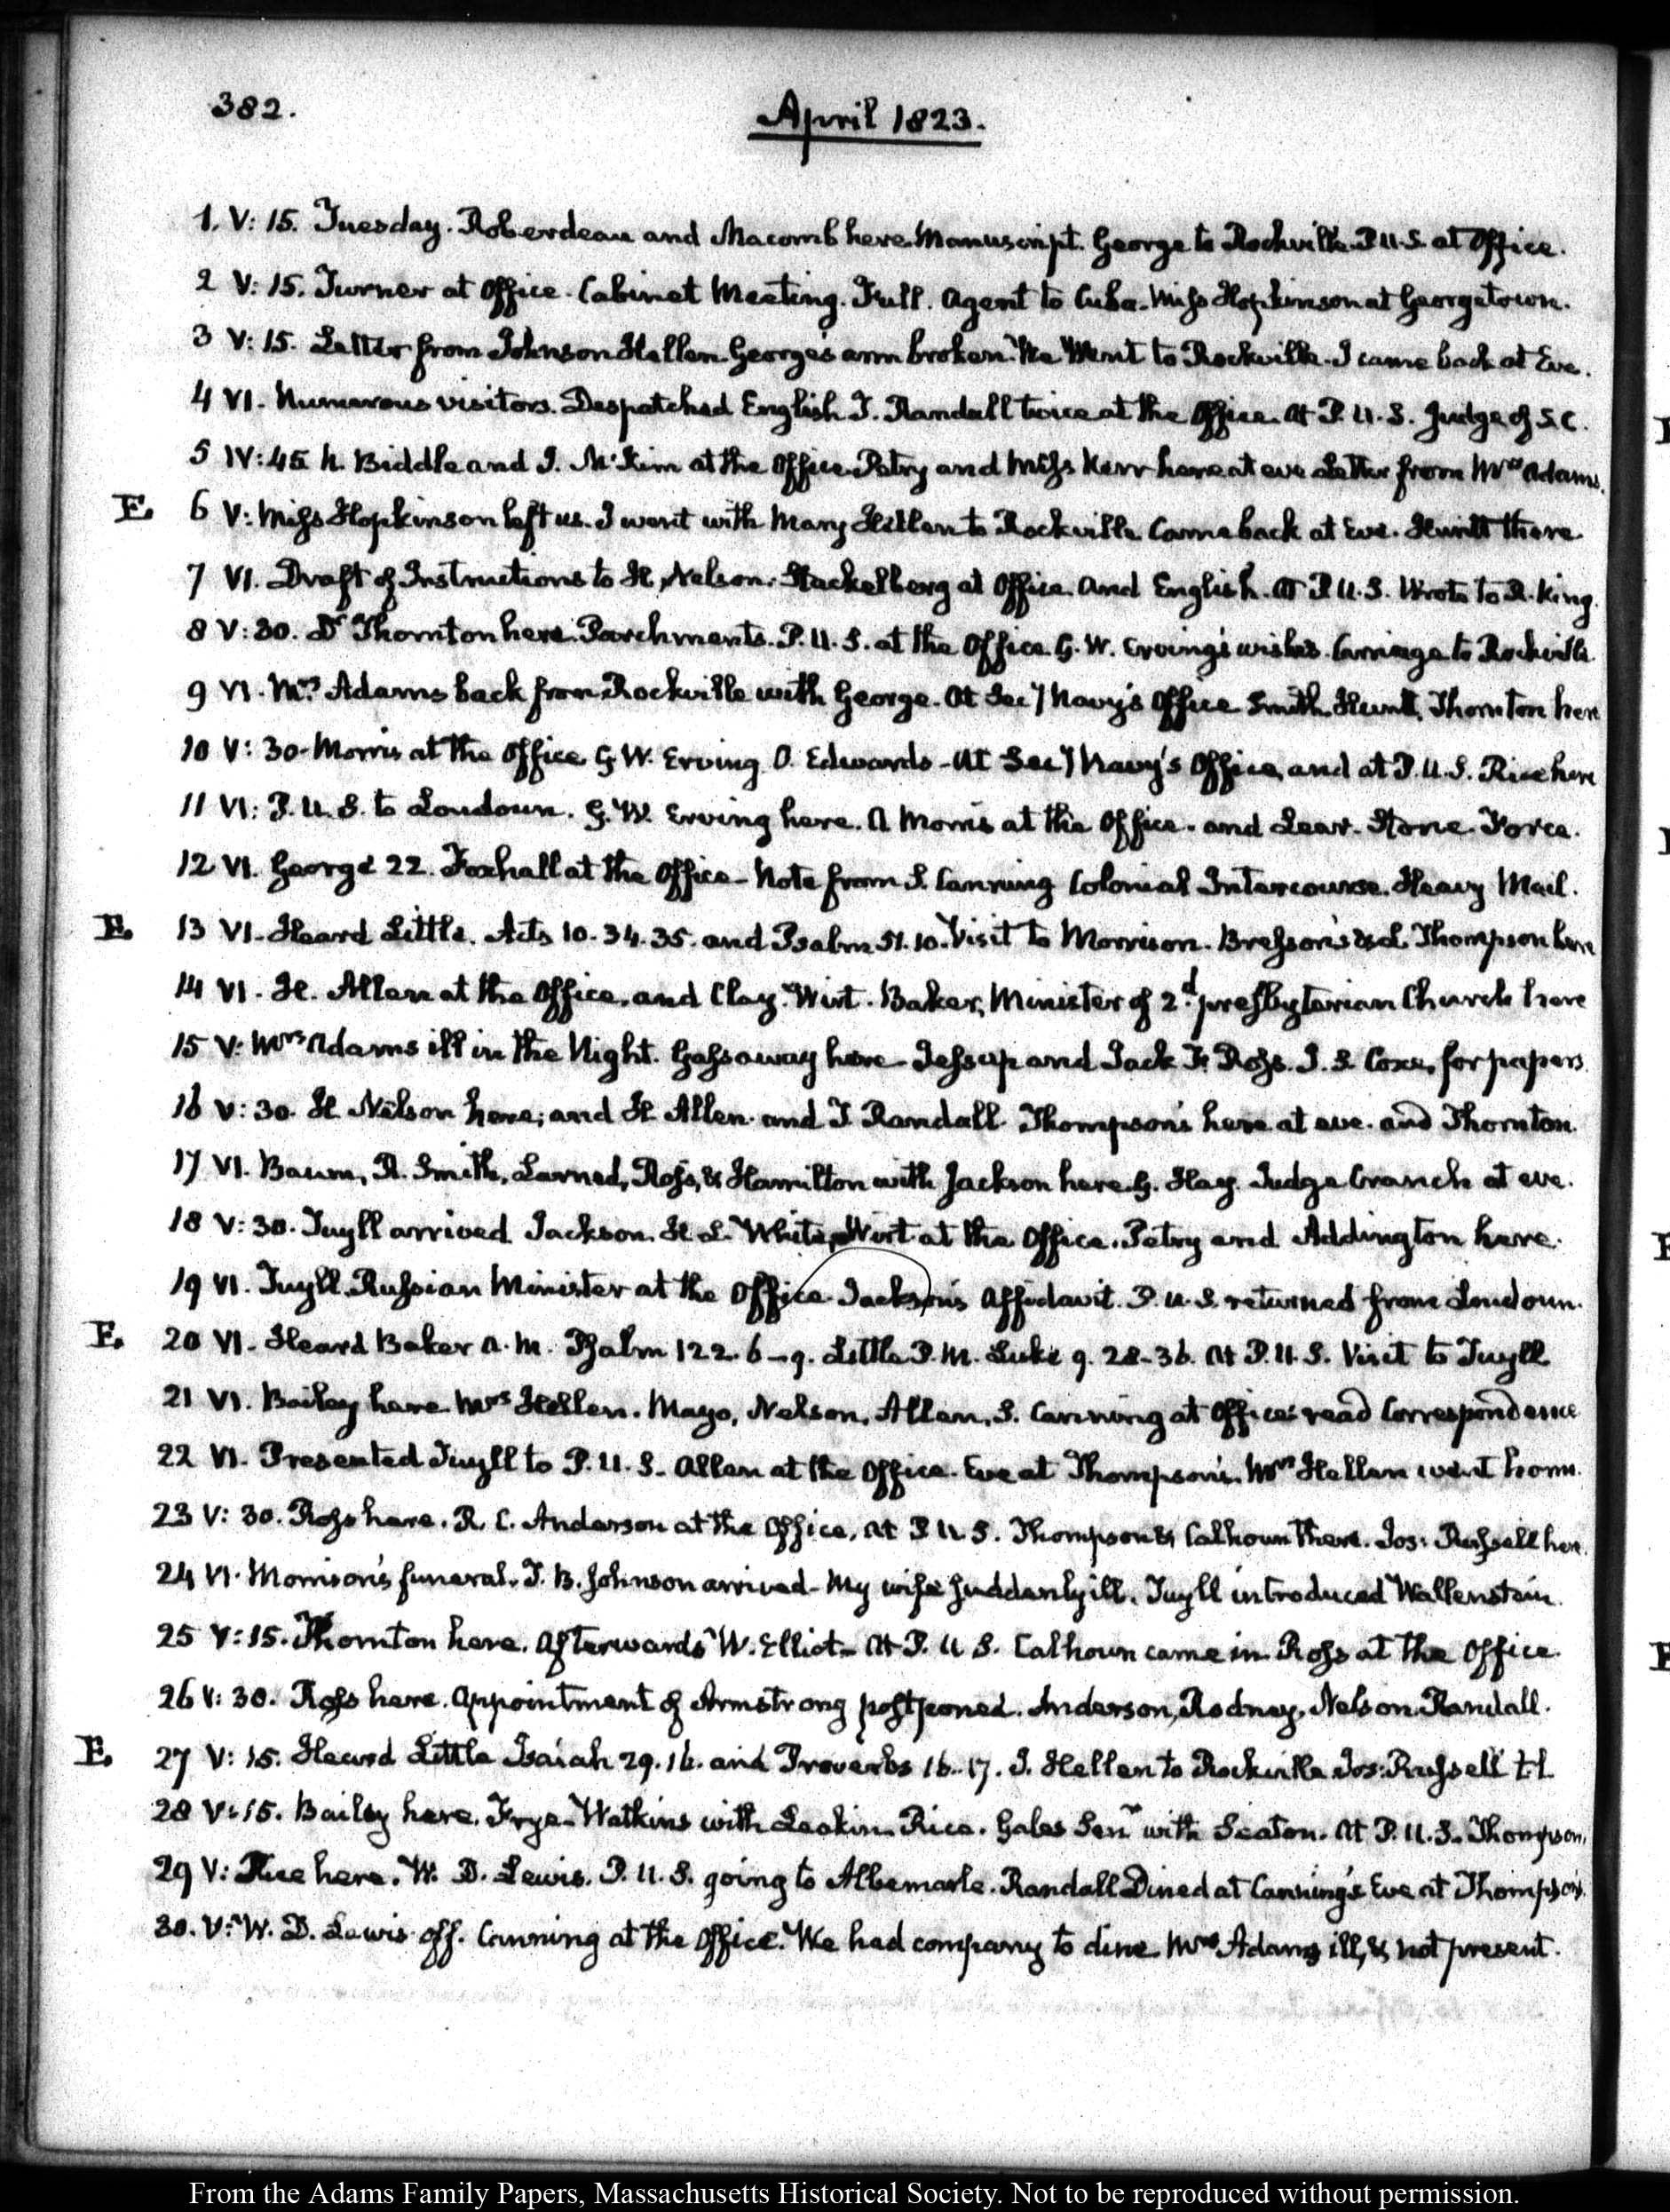 382.
April 1823.
1. V: 15. Tuesday. Roberdeau and Macomb here. Manuscript. George to Rockville. P.U.S. at Office.
2 V: 15. Turner at Office. Cabinet Meeting. Full. Agent to Cuba. Miss Hopkinson at Georgetown.
3 V: 15. Letter from Johnson Hellen. George's arm broken. We Went to Rockville. I came back at Eve.
4 VI. Numerous visitors. Despatched English. T. Randall twice at the Office. At P.U.S. Judge of S.C.
5 IV: 45. N. Biddle and I. McKim at the Office. Petry and Miss Kerr here at eve. Letter from Mrs Adams.
E. 6 V: Miss Hopkinson left us. I went with Mary Hellen to Rockville. Came back at Eve. Huntt there.
7 VI. Draft of Instructions to H. Nelson. Stackelberg at Office. And English. At P.U.S. Wrote to R. King.
8 V: 30. Dr Thornton here. Parchments. P.U.S. at the Office. G. W. Erving's wishes. Carriage to Rockville.
9 VI. Mrs Adams back from Rockville with George. At Secy Navy's Office. Smith. Huntt, Thornton here
10 V: 30. Morris at the Office. G. W. Erving. O. Edwards. At Secy Navy's Office, and at P.U.S. Rice here
11 VI: P.U.S. to Loudoun. G. W. Erving here. A Morris at the Office. and Lear. Stone. Force.
12 VI. George 22. Foxhall at the Office. Note from S. Canning Colonial Intercourse. Heavy Mail.
E. 13 VI. Heard Little. Acts 10. 34. 35. and Psalm 51. 10. Visit to Morrison. Bresson's & Thompson here
14 VI. H. Allen at the Office, and Clay. Wirt. Baker, Minister of 2d presbyterian Church here
15 V: Mrs Adams ill in the Night. Gassaway here. Jessup and Jack F. Ross. J. S. Coxe, for papers
16 V: 30. H Nelson here; and H Allen. and T Randall. Thompson's here at eve. and Thornton.
17 VI. Baum, R. Smith, Larned, Ross, & Hamilton with Jackson here. G. Hay. Judge Cranch at eve.
18 V: 30. Tuyll arrived. Jackson. H. L. White, Wirt at the Office. Petry and Addington here.
19 VI. Tuyll. Russian Minister at the Office. Jackson's Affidavit. P.U.S. returned from Loudoun.
E. 20 VI. Heard Baker A.M. Psalm 122. 6–9. Little P.M. Luke 9. 28–36. At P.U.S. Visit to Tuyll
21 VI. Bailey here. Mrs Hellen. Mayo, Nelson, Allen, S. Canning at Office: read Correspondence
22 VI. Presented Tuyll to P.U.S. Allen at the Office. Eve at Thompson's. Mrs Hellen went home.
23 V: 30. Ross here. R. C. Anderson at the Office. At P.U.S. Thompson & Calhoun there. Jos: Russell here.
24 VI. Morrison's funeral. T. B. Johnson arrived. My wife suddenly ill. Tuyll introduced Wallenstein.
25 V: 15. Thornton here. Afterwards W. Elliot. At P.U.S. Calhoun came in. Ross at the Office.
26 V: 30. Ross here. Appointment of Armstrong postponed. Anderson, Rodney, Nelson. Randall.
E. 27 V: 15. Heard Little Isaiah 29. 16. and Proverbs 16. 17. J. Hellen to Rockville. Jos: Russell
28 V: 15. Bailey here. Frye. Watkins with Leakin. Rice. Gales Senr with Seaton. At P.U.S. Thompson,
29 V: Rice here. W. D. Lewis. P.U.S. going to Albemarle. Randall. Dined at Canning's. Eve at Thompson's.
30. V: W. D. Lewis off. Canning at the Office. We had company to dine. Mrs Adams ill, & not present.
From the Adams Family Papers, Massachusetts Historical Society. Not to be reproduced without permission.